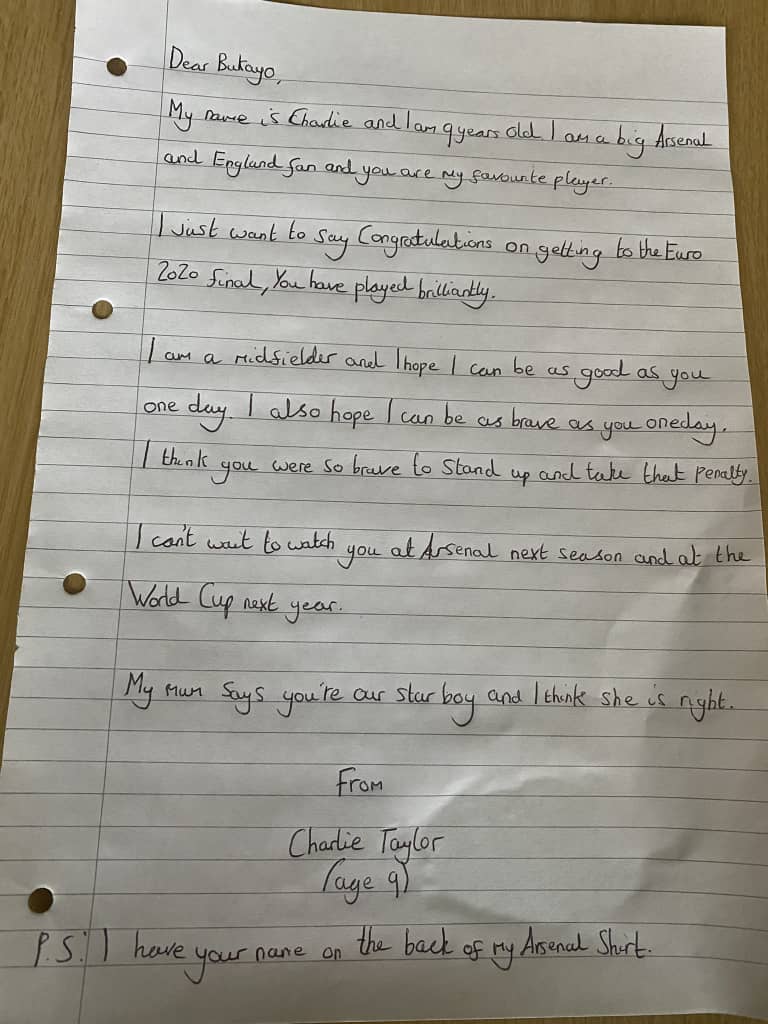 Dear Bukayo,
My name is Charlie and I am 9 years old. I am a big Arsenal
and England fan and you are my favourite player.
I just want to say Congratulations on getting to the Euro
2020 final, You have played brilliantly.
I am a midfielder and I hope I can be as good as you
one day. I also hope I can be as brave as you oneday.
I think you were so brave to Stand up and take that penalty.
I can't wait to watch you at Arsenal next season and at the
World Cup next year.
My mum says you're our star boy and I think she is right.
From
Charlie Taylor
(age 9)
P.S: I have your name on the back of my Arsenal Shirt.